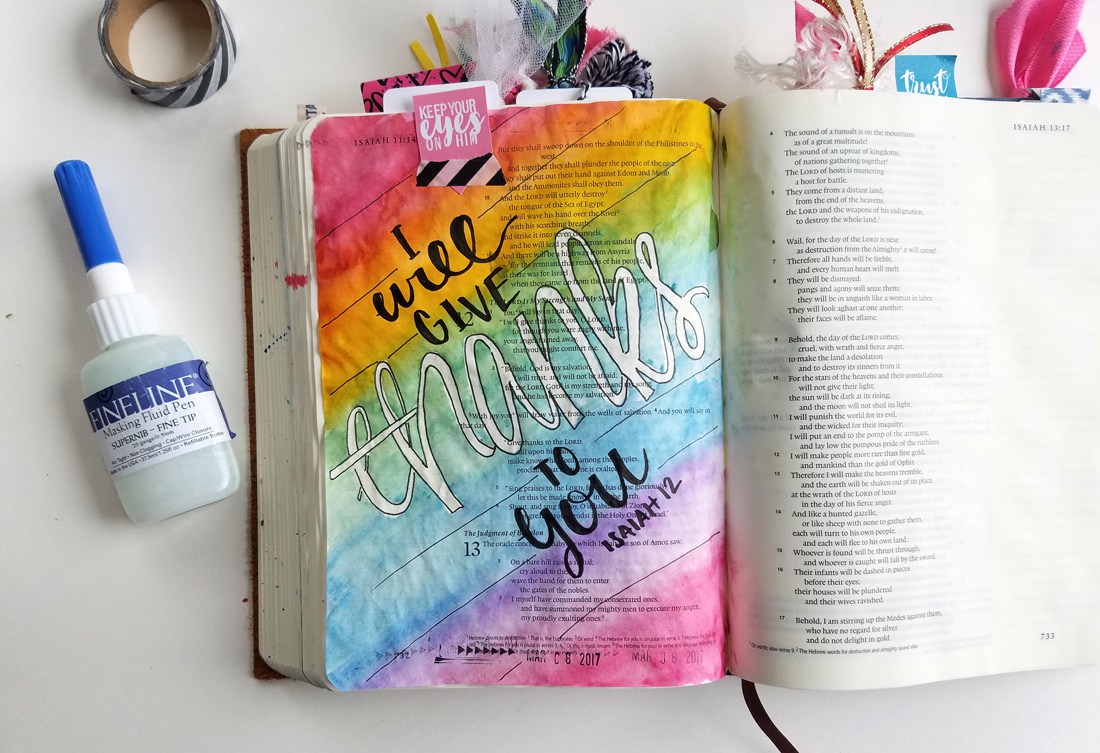 KEEP YOUR
eyes
ON HIM
trust
FINELINE
Masking Fluid Pen
SUPERNIB - FINE TIP
20 gauge/0.5mm
Air Tight - Non-Clogging - Cap/Wire Closure
Made in the USA - 37.5ml/1.25fl oz - Refillable Bottle
ISAIAH 11:14
But they shall swoop down on the shoulder of the Philistines in the
west,
and together they shall plunder the people of the east.
They shall put out their hand against Edom and Moab,
and the Ammonites shall obey them.
15 And the LORD will utterly destroy
the tongue of the Sea of Egypt,
and will wave his hand over the River
with his scorching breath,
and strike it into seven channels,
and he will lead people across in sandals.
And there will be a highway from Assyria
for the remnant that remains of his people,
as there was for Israel
when they came up from the land of Egypt.
I
will
GIVE
thanks
TO
you
ISAIAH 12
The LORD Is My Strength and My Song
You will say in that day:
"I will give thanks to you, O LORD,
for though you were angry with me,
your anger turned away,
that you might comfort me.
2 "Behold, God is my salvation;
I will trust, and will not be afraid;
for the LORD GOD is my strength and my song,
and he has become my salvation."
3 With joy you will draw water from the wells of salvation. 4 And you will say in
that day:
"Give thanks to the LORD,
call upon his
make known his deeds among the peoples,
proclaim that his name is exalted.
5 "Sing praises to the LORD, for he has done gloriously;
let this be made known in all the earth.
Shout, and sing for joy, O inhabitant of Zion,
for great in your midst is the Holy One of Israel."
The Judgment of Babylon
13 The oracle concerning Babylon which Isaiah the son of Amoz saw.
2 On a bare hill raise a signal;
cry aloud to them;
wave the hand for them to enter
the gates of the nobles.
3 I myself have commanded my consecrated ones,
and have summoned my mighty men to execute my anger,
my proudly exulting ones.
732
MAR 08 2017 MAR 08 2017
ISAIAH 13:17
4 The sound of a tumult is on the mountains
as of a great multitude!
The sound of an uproar of kingdoms,
of nations gathering together!
The LORD of hosts is mustering
a host for battle.
5 They come from a distant land,
from the end of the heavens,
the LORD and the weapons of his indignation,
to destroy the whole land.
6 Wail, for the day of the LORD is near;
as destruction from the Almighty it will come!
7 Therefore all hands will be feeble,
and every human heart will melt.
8 They will be dismayed:
pangs and agony will seize them;
they will be in anguish like a woman in labor.
They will look aghast at one another;
their faces will be aflame.
9 Behold, the day of the LORD comes,
cruel, with wrath and fierce anger,
to make the land a desolation
and to destroy its sinners from it.
10 For the stars of the heavens and their constellations
will not give their light;
the sun will be dark at its rising,
and the moon will not shed its light.
11 I will punish the world for its evil,
and the wicked for their iniquity;
I will put an end to the pomp of the arrogant,
and lay low the pompous pride of the ruthless.
12 I will make people more rare than fine gold,
and mankind than the gold of Ophir.
13 Therefore I will make the heavens tremble,
and the earth will be shaken out of its place,
at the wrath of the LORD of hosts
in the day of his fierce anger.
14 And like a hunted gazelle,
or like sheep with none to gather them,
each will turn to his own people,
and each will flee to his own land.
15 Whoever is found will be thrust through,
and whoever is caught will fall by the sword.
16 Their infants will be dashed in pieces
before their eyes;
their houses will be plundered
and their wives ravished.
17 Behold, I am stirring up the Medes against them,
who have no regard for silver
and do not delight in gold.
733